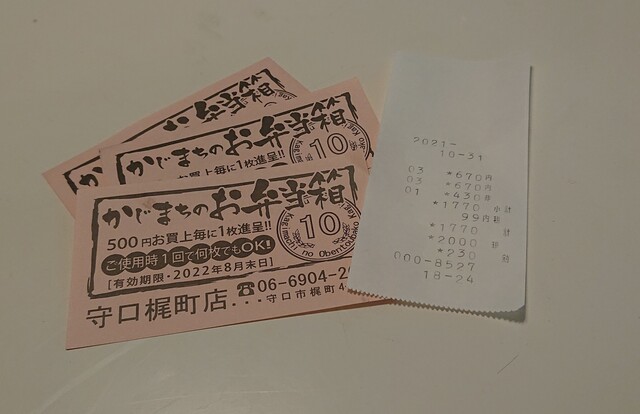 お弁当箱
かじまちのお弁当箱
お買上毎に1枚進呈!!
10
かじまちのお弁当箱
500円お買上毎に1枚進呈!!
ご使用時1回で何枚でもOK!
[有効期限・2022年8月末日]
10
Kajimachi no Obentoubako
守口梶町店...
☎06-6904-2
守口市梶町4
2021-
10-31
03 *670円
03 *670円
01 *430
*1770 小計
99内税
*1770 計
*2000
*230
000-8527
18-24